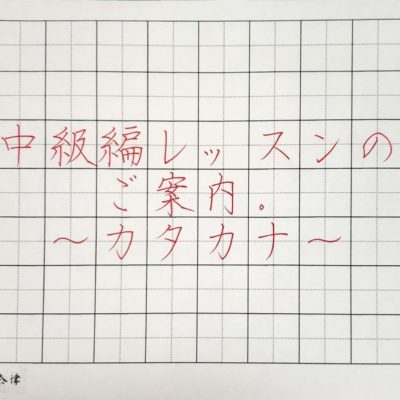 中級編レッスンの
ご案内。
～カタカナ～